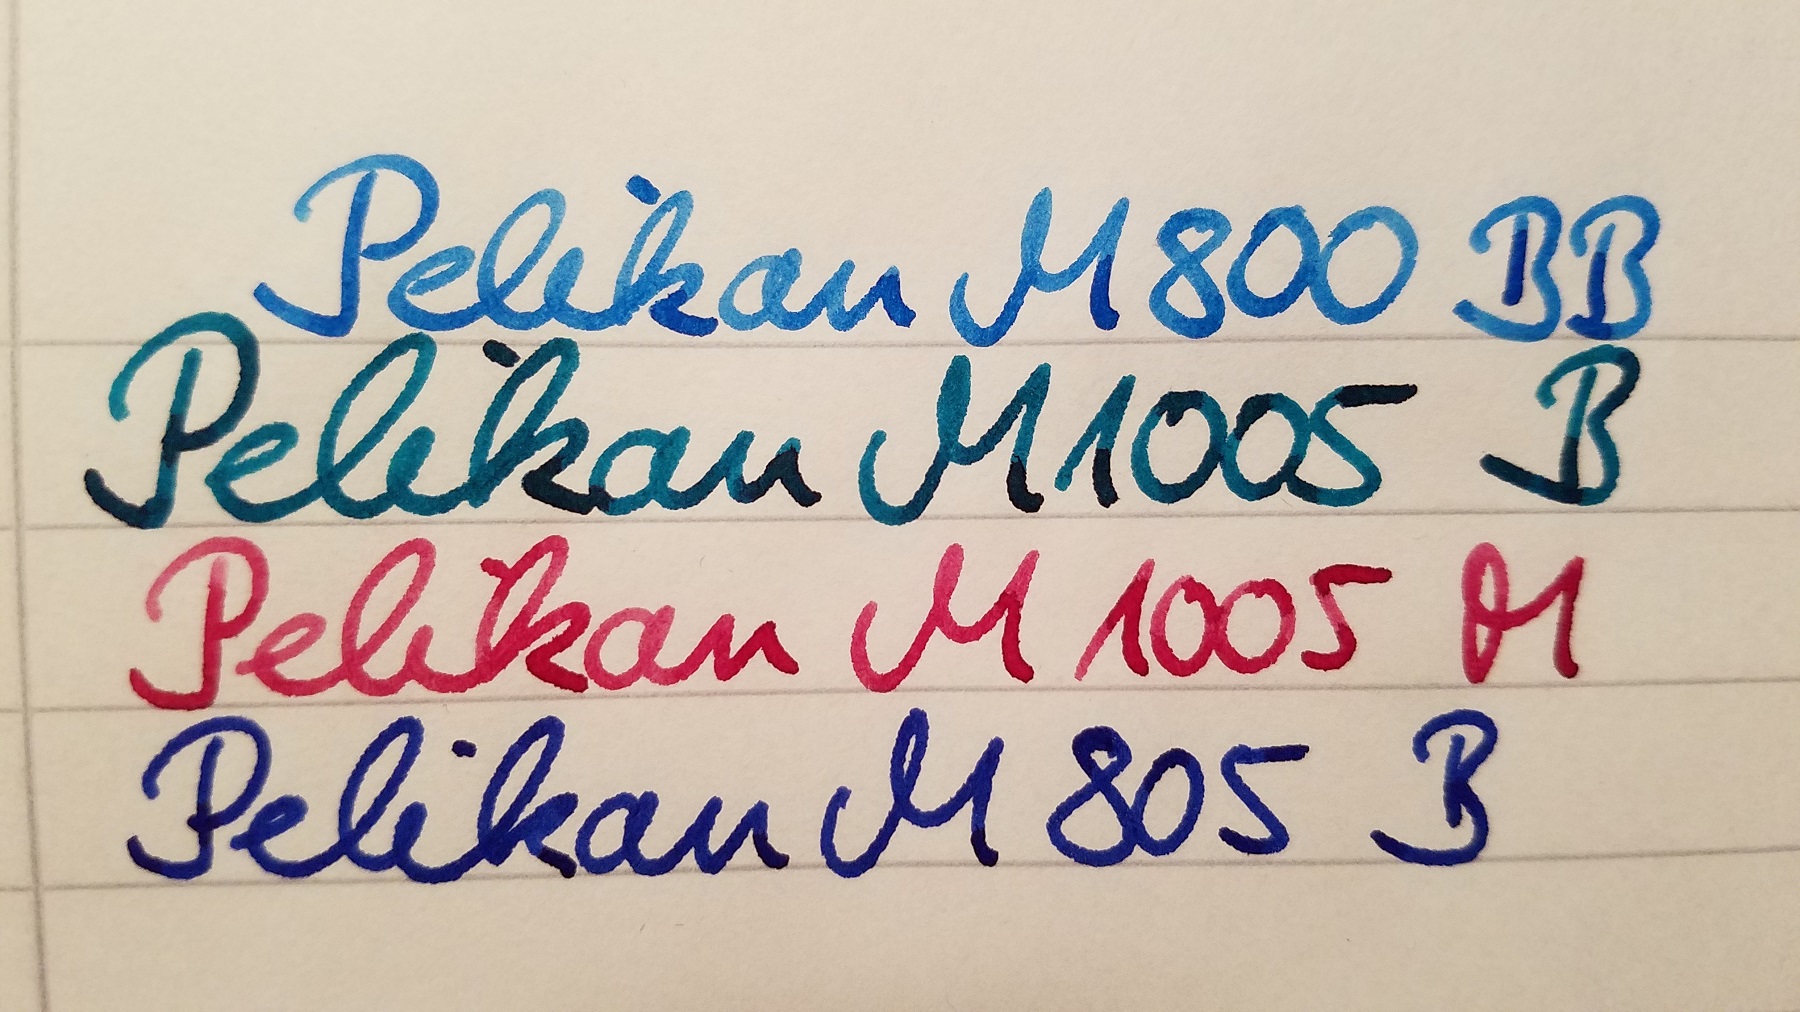 Pelikan M800 BB
Pelikan M1005 B
Pelikan M1005 M
Pelikan M805 B